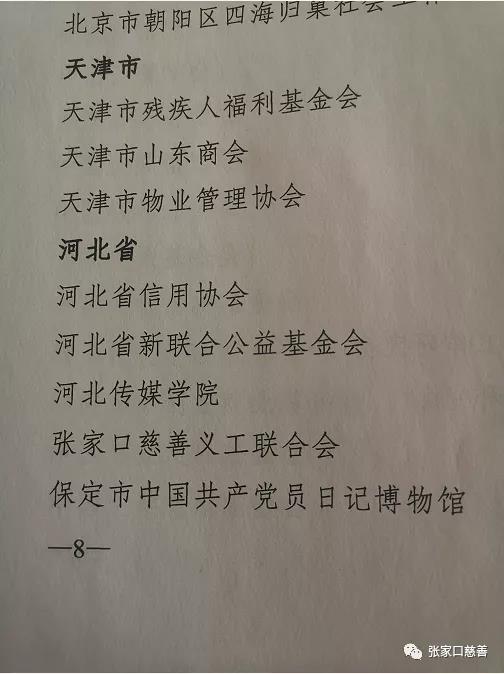 北京市朝阳区四海归巢社会工作
天津市
天津市残疾人福利基金会
天津市山东商会
天津市物业管理协会
河北省
河北省信用协会
河北省新联合公益基金会
河北传媒学院
张家口慈善义工联合会
保定市中国共产党员日记博物馆
—8—
张家口慈善